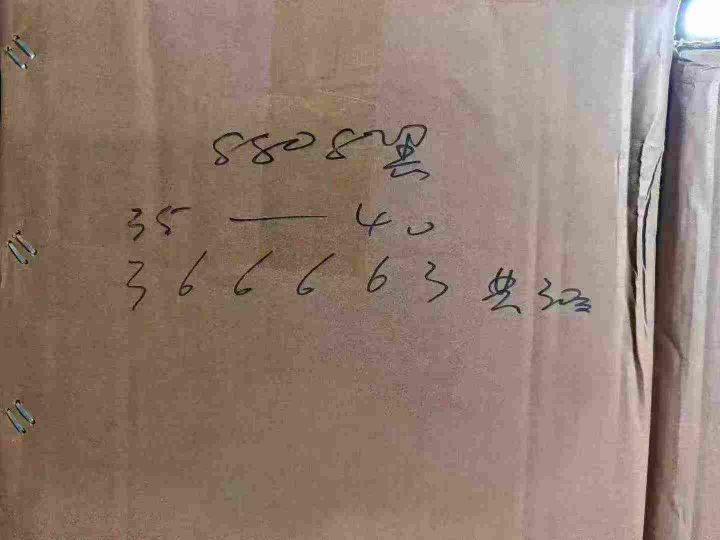 8808
35 — 40
3 6 6 6 6 3 共30双